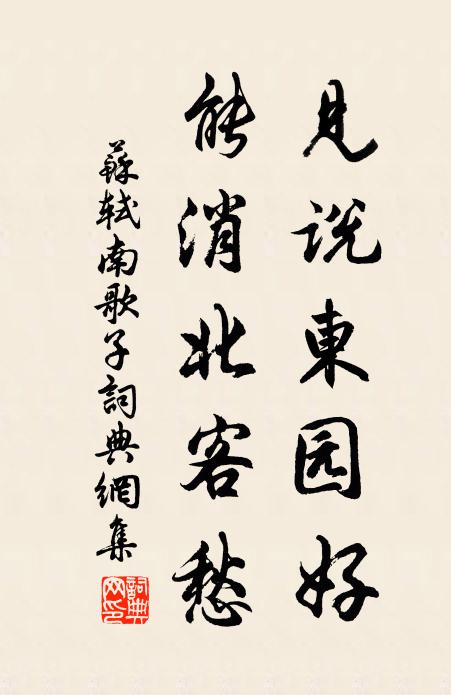 見说東园好
能消北客愁
蘇軾南歌子詞典網集
詞典網印